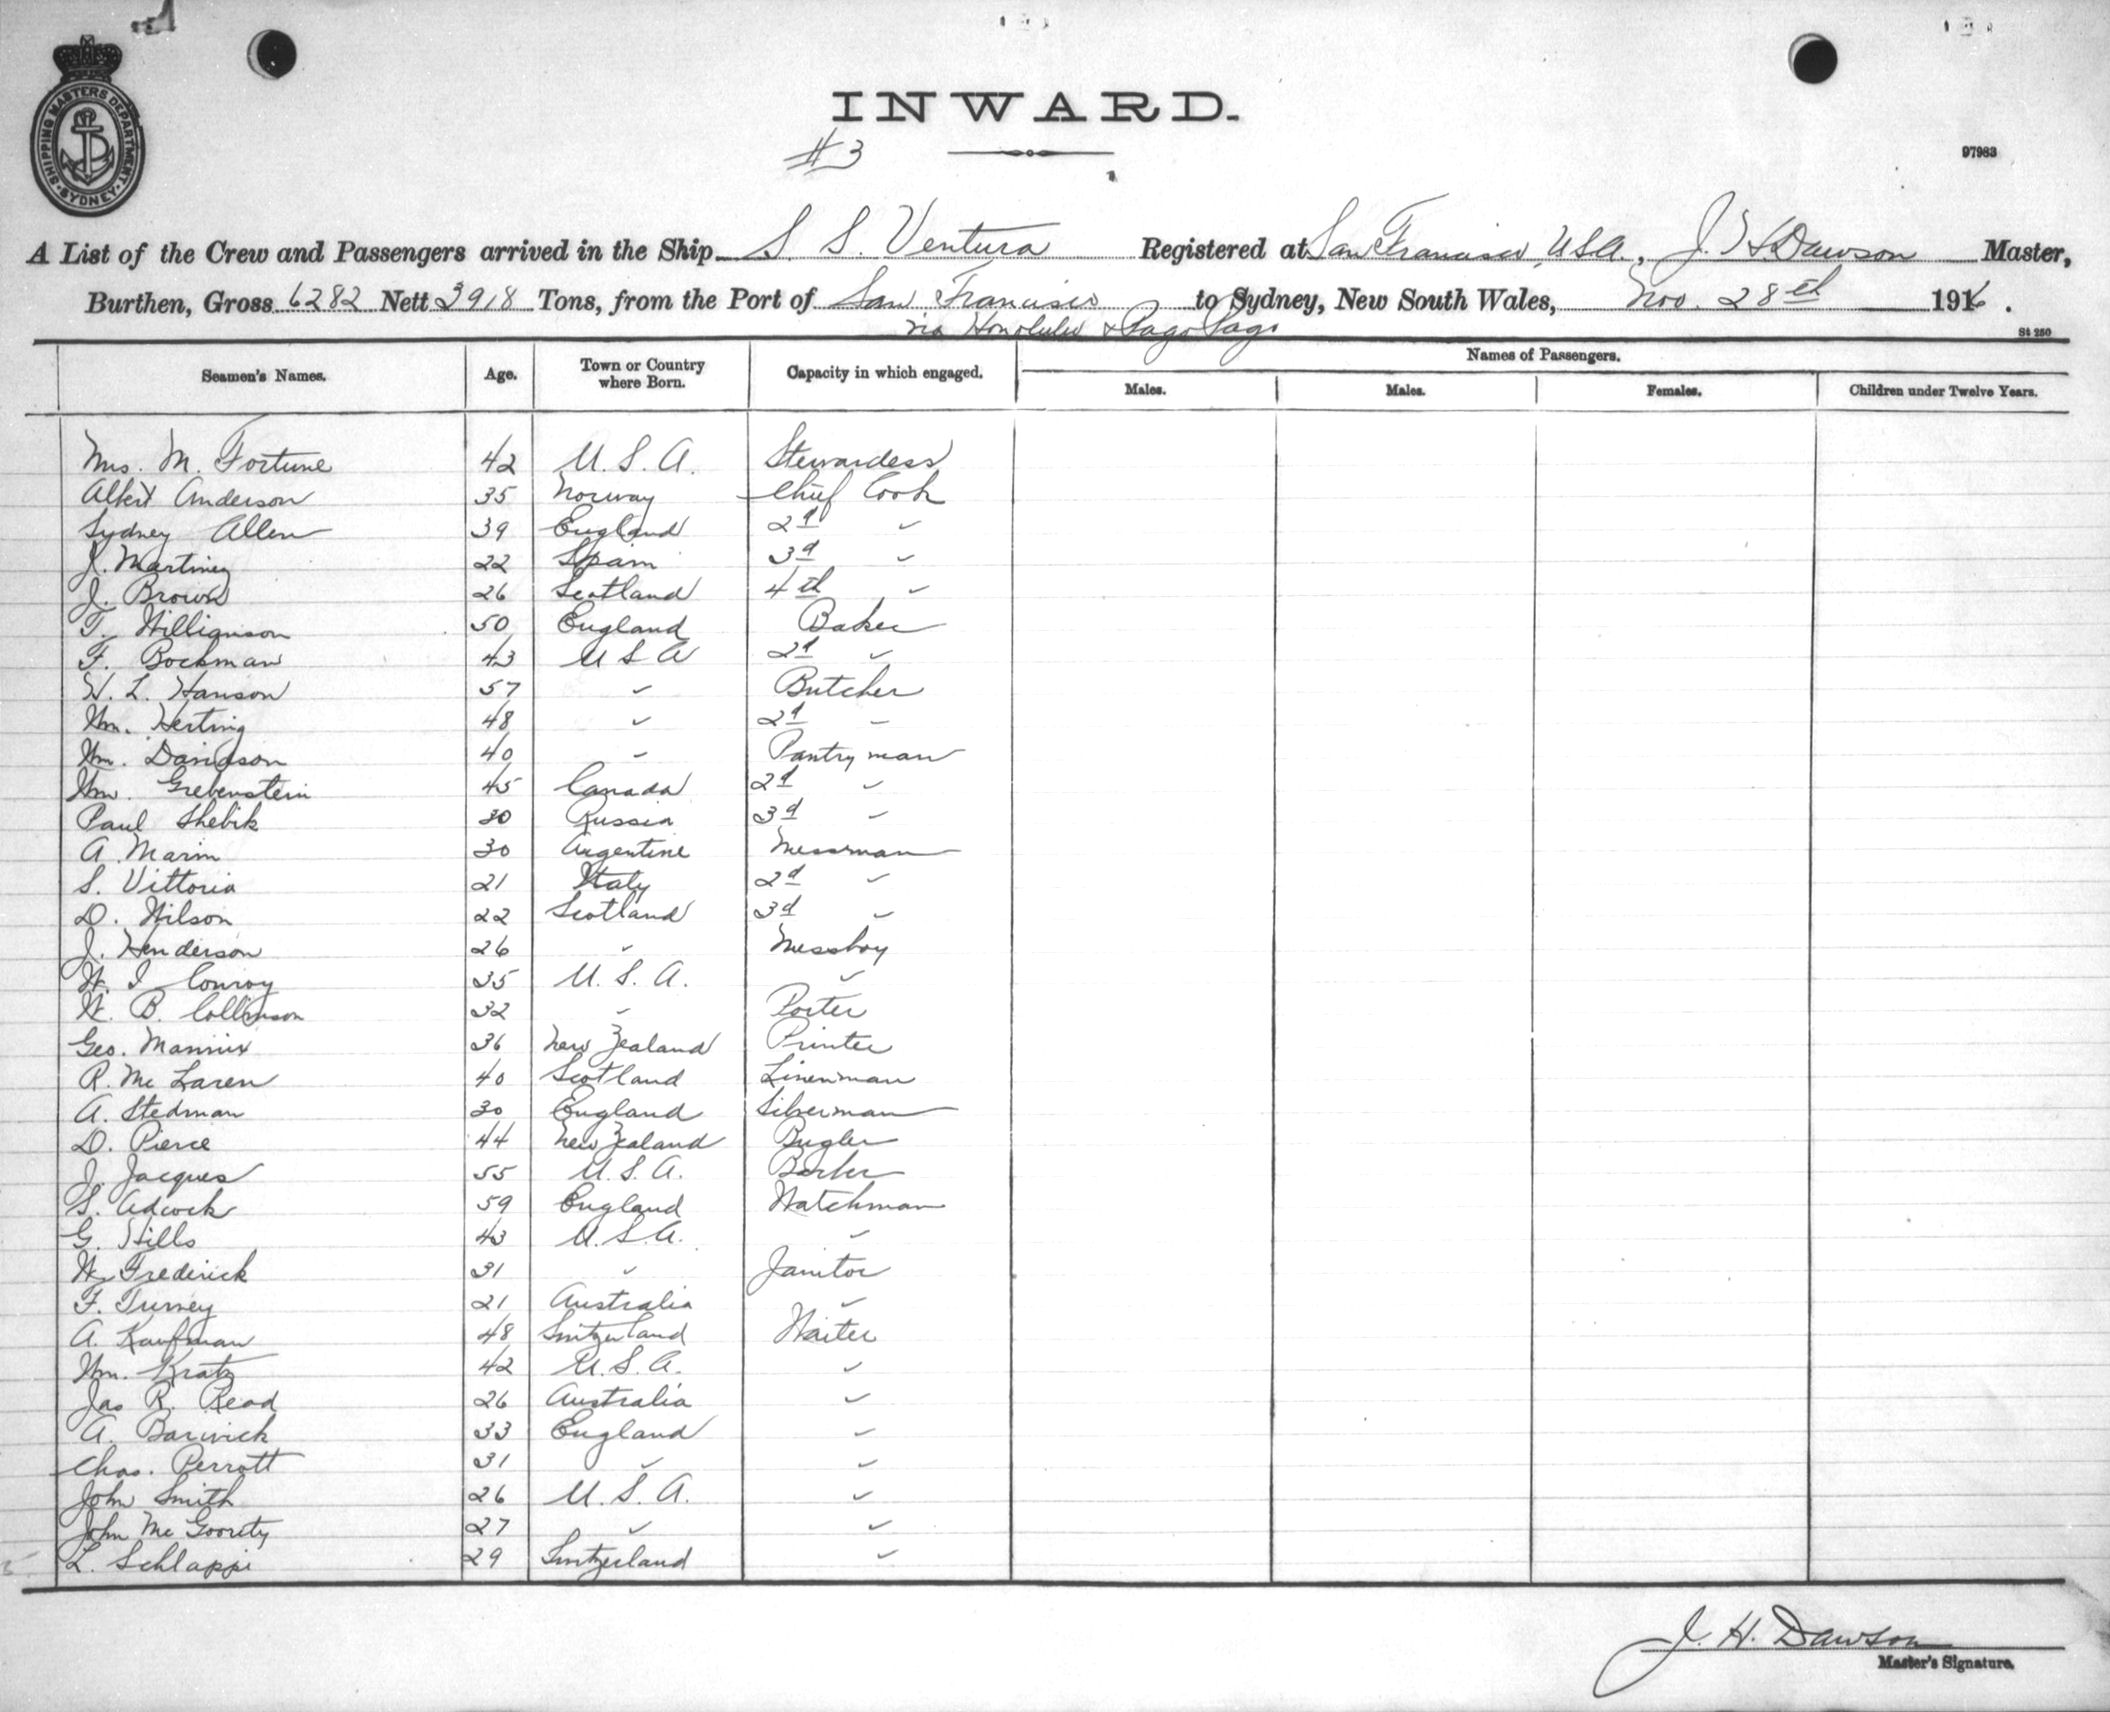 SHIPPING MASTERS DEPARTMENT. SYDNEY
INWARD.
#3
97983
A List of the Crew and Passengers arrived in the Ship S. S. Ventura Registered at San Francisco, USA., J. H. Dawson Master,
Burthen, Gross 6282 Nett 3918 Tons, from the Port of San Francisco to Sydney, New South Wales, Nov. 28th 1916.
via Honolulu & Pago Pago
St 250
Seamen's Names. Age. Town or Country where Born. Capacity in which engaged. Names of Passengers.
Males. Males. Females. Children under Twelve Years.
Mrs. M. Fortune 42 U. S. A. Stewardess
Albert Anderson 35 Norway Chief Cook
Sydney Allen 39 England 2d "
J. Martinez 22 Spain 3d "
J. Brown 26 Scotland 4th "
T. Williamson 50 England Baker
F. Bockman 43 U S A 2d "
W. L. Hanson 57 " Butcher
Wm. Herting 48 " 2d "
Wm. Davidson 40 " Pantryman
Wm. Grebenstein 45 Canada 2d "
Paul Shebik 30 Russia 3d "
A. Marin 30 Argentine Messman
S. Vittoria 21 Italy 2d "
D. Wilson 22 Scotland 3d "
J. Henderson 26 " Messboy
W. I. Conroy 35 U. S. A. "
W. B. Collinson 32 " Porter
Geo. Mannix 36 New Zealand Printer
R. Mc Laren 40 Scotland Linenman
A. Stedman 30 England Silverman
D. Pierce 44 New Zealand Bugler
J. Jacques 55 U. S. A. Barber
S. Adcock 59 England Watchman
G. Hills 43 U. S. A. "
W. Frederick 31 " Janitor
F. Turney 21 Australia "
A. Kaufman 48 Switzerland Waiter
Wm. Kratz 42 U. S. A. "
Jas R. Read 26 Australia "
A. Barwick 33 England "
Chas. Perrott 31 " "
John Smith 26 U. S. A. "
John Mc Goorty 27 " "
L. Schlappi 29 Switzerland "
J. H. Dawson
Master's Signature.